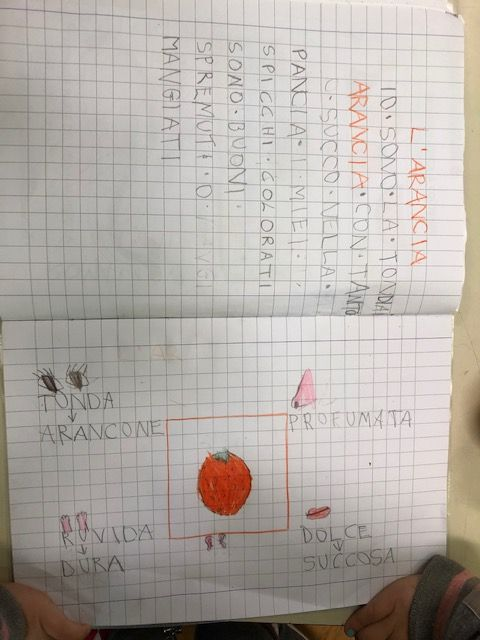 L'ARANCIA
IO·SONO·LA·TONDA
ARANCIA·CON·TANTO
SUCCO·NELLA·
PANCIA·I·MIEI·
SPICCHI·COLORATI
SONO·BUONI·
SPREMUTI·O·
MANGIATI
TONDA
↓
ARANCONE
PROFUMATA
RUVIDA
↓
DURA
DOLCE
↓
SUCCOSA